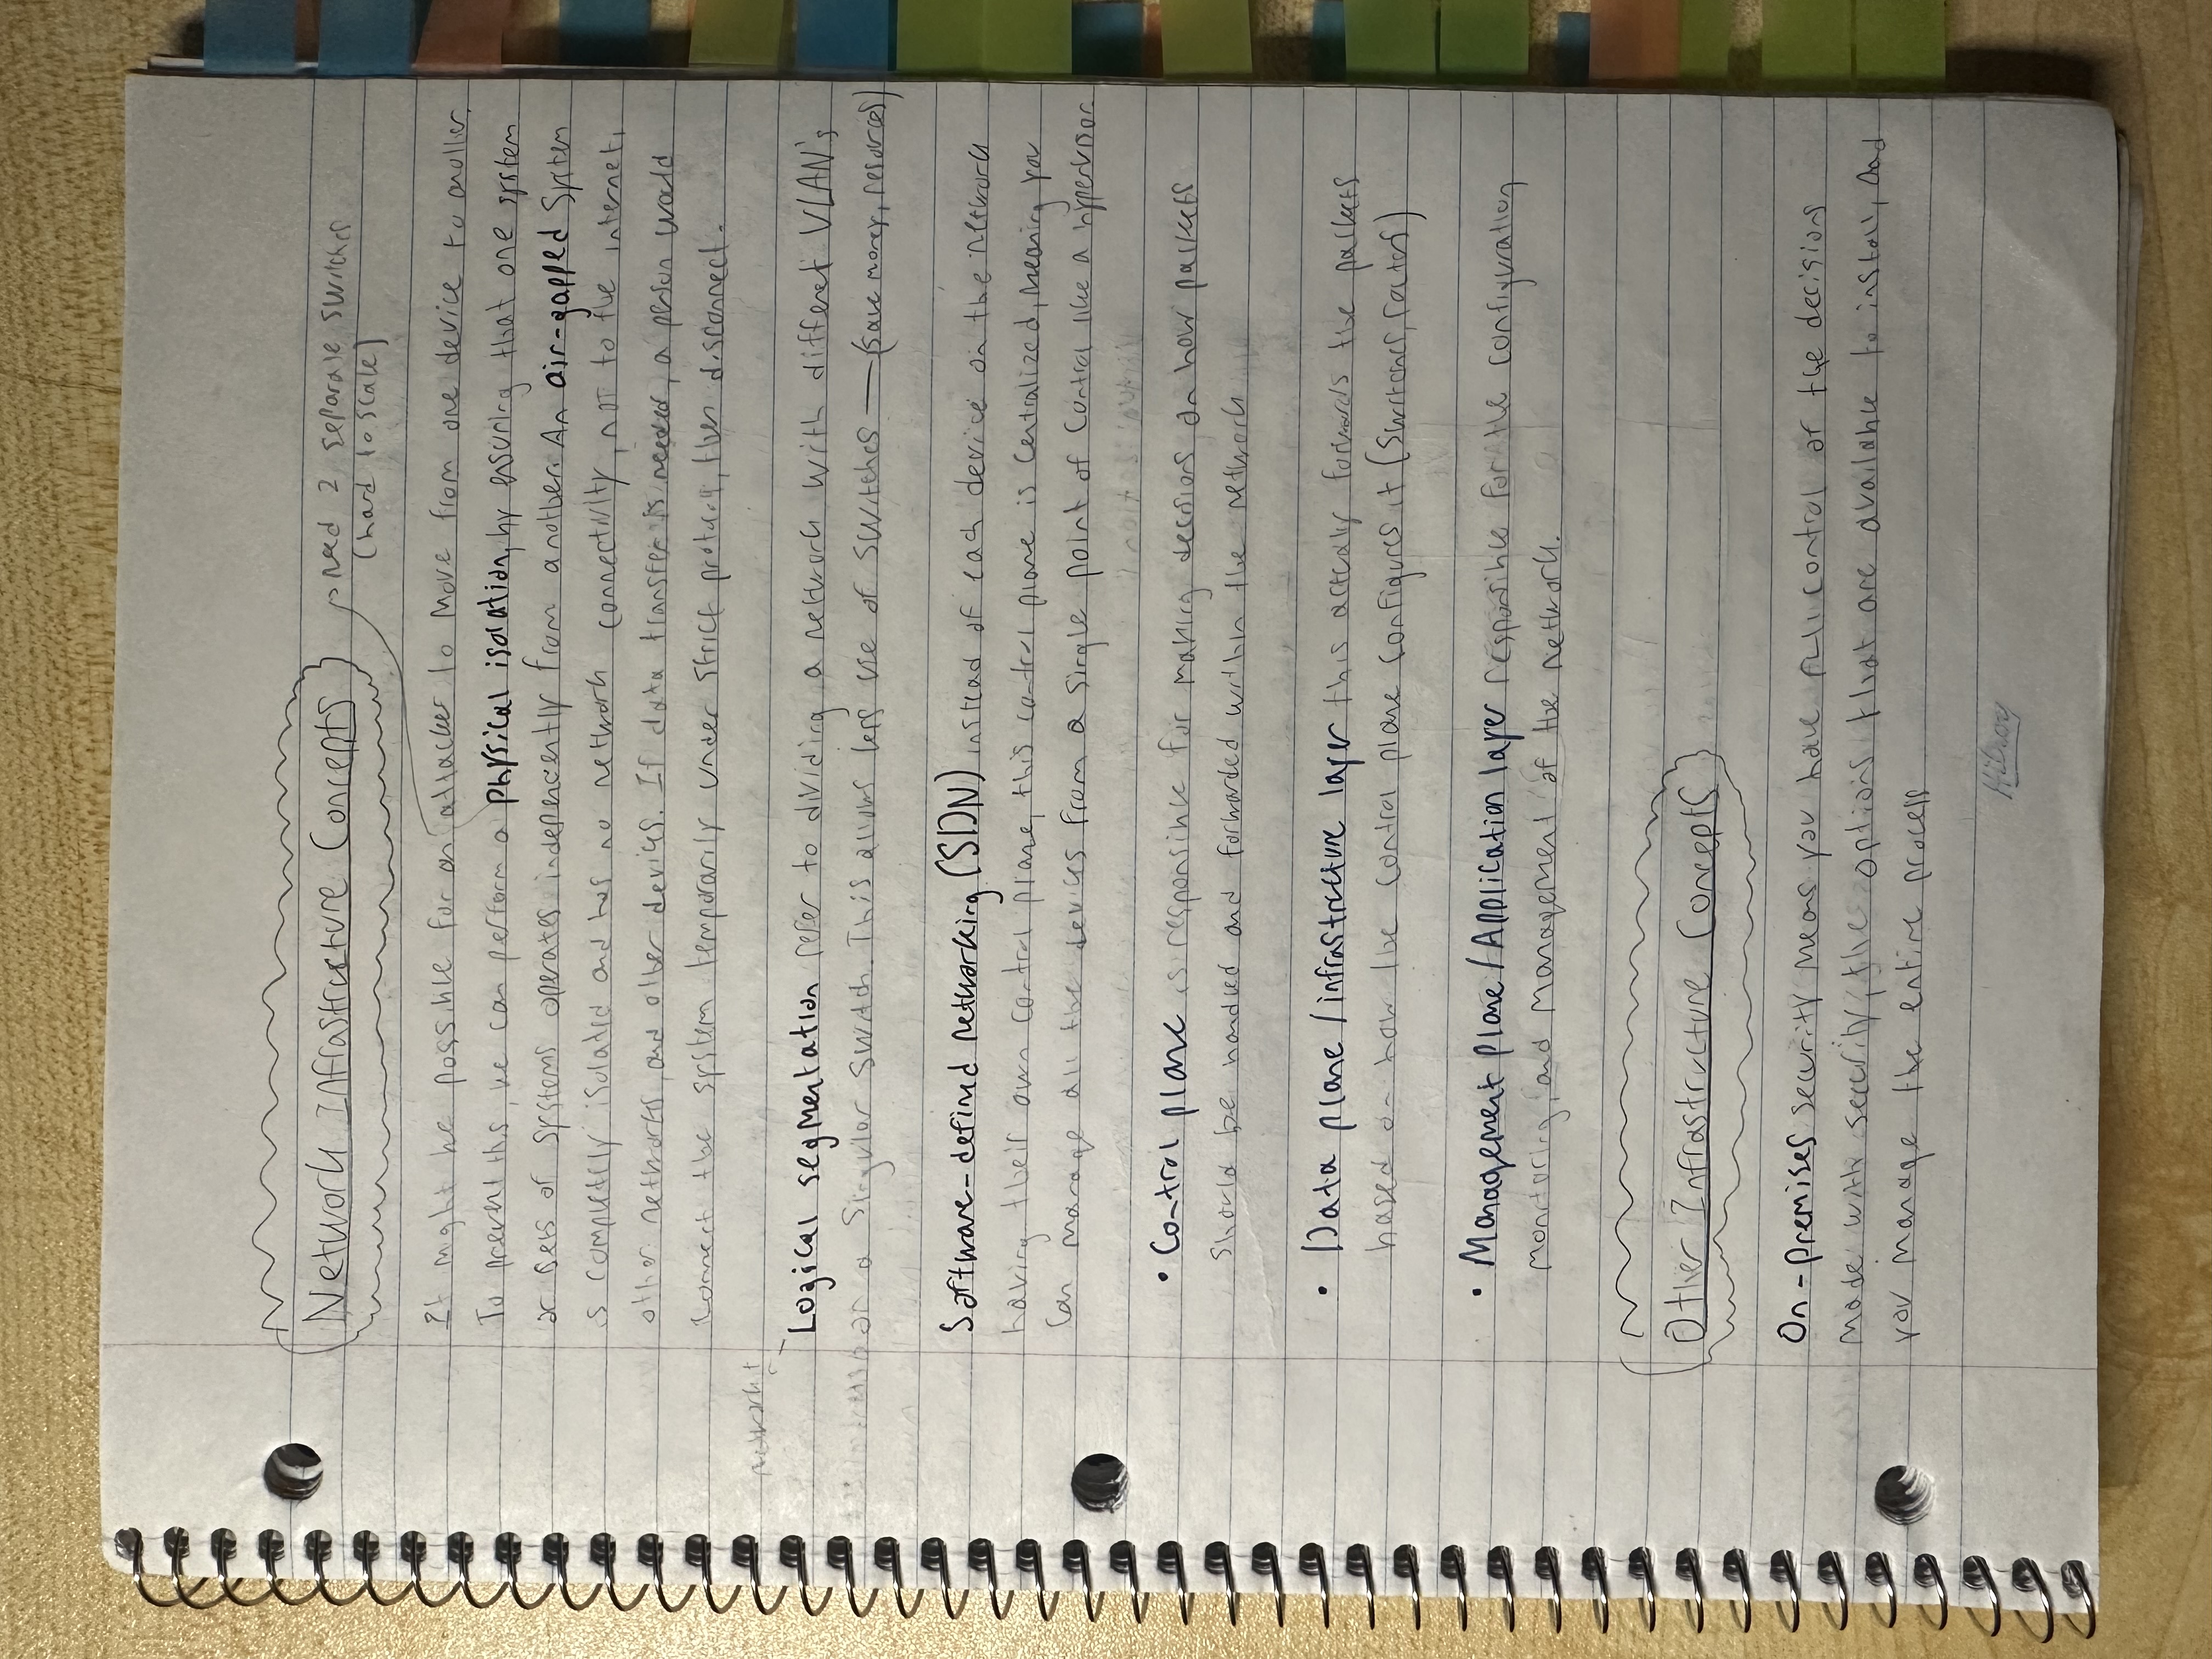 Network Infrastructure Concepts
need 2 separate switches
(hard to scale)
It might be possible for an attacker to move from one device to another.
To prevent this, we can perform a physical isolation, by ensuring that one system
or sets of systems operates independently from another. An air-gapped system
is completely isolated and has no network connectivity, not to the internet,
other networks, and other devices. If data transfer is needed, a person would
connect the system temporarily under strict protocol, then disconnect.
network+
Logical segmentation refer to dividing a network with different VLAN's
on a singular switch. This allows less use of switches — (save money, resources)
Software-defined networking (SDN) instead of each device on the network
having their own control plane, this control plane is centralized, meaning you
can manage all the devices from a single point of control like a hypervisor
• Control plane is responsible for making decisions on how packets
should be handled and forwarded within the network
• Data plane / infrastructure layer this actually forwards the packets
based on how the control plane configures it (switches, routers)
• Management plane / Application layer responsible for the configuration
monitoring, and management of the network.
Other Infrastructure Concepts
On-premises security means you have full control of the decisions
made with security, the options that are available to install, and
you manage the entire process
Hilroy